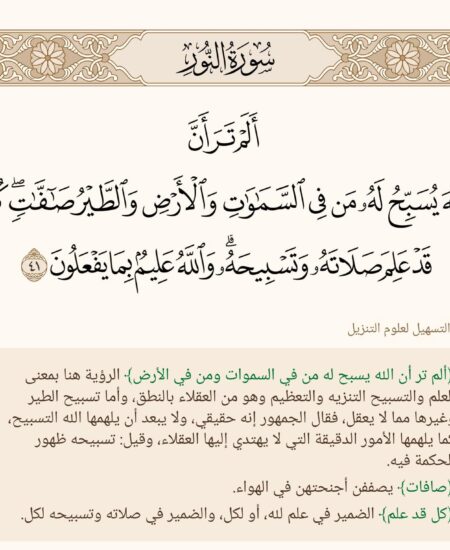 سُورَةُ النُّورِ
أَلَمْ تَرَ أَنَّ
يُسَبِّحُ لَهُۥ مَن فِى ٱلسَّمَٰوَٰتِ وَٱلْأَرْضِ وَٱلطَّيْرُ صَٰٓفَّٰتٍۢ ۖ
قَدْ عَلِمَ صَلَاتَهُۥ وَتَسْبِيحَهُۥ ۗ وَٱللَّهُ عَلِيمٌۢ بِمَا يَفْعَلُونَ ٤١
التسهيل لعلوم التنزيل
{ألم تر أن الله يسبح له من في السموات ومن في الأرض}· الرؤية هنا بمعنى
لعلم والتسبيح التنزيه والتعظيم وهو من العقلاء بالنطق، وأما تسبيح الطير
وغيرها مما لا يعقل، فقال الجمهور إنه حقيقي، ولا يبعد أن يلهمها الله التسبيح،
كما يلهمها الأمور الدقيقة التي لا يهتدي إليها العقلاء، وقيل: تسبيحه ظهور
لحكمة فيه.
{صافات}· يصففن أجنحتهن في الهواء.
{كل قد علم}· الضمير في علم لله، أو لكل، والضمير في صلاته وتسبيحه لكل.